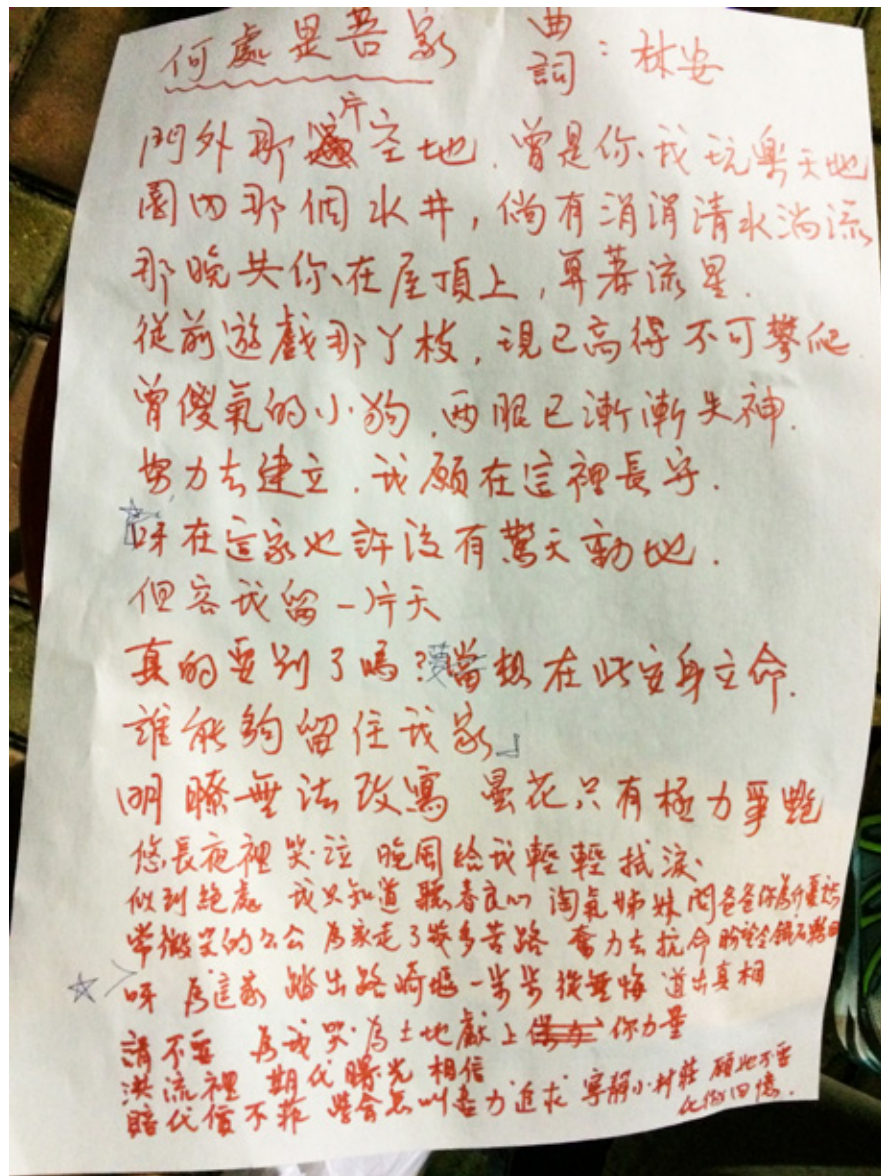 何處是吾家 曲詞：林安
門外那片空地，曾是你我玩樂天地
園內那個水井，尚有涓涓清水淌流
那晚共你在屋頂上，算著流星．
從前遊戲那丫枝，現已高得不可攀爬．
曾傻氣的小狗，兩眼已漸漸失神．
努力去建立，我願在這裡長守．
☆呀在這家也許沒有驚天動地．
但容我留一片天
真的要別了嗎？當想在此安身立命．
誰能夠留住我家」
明瞭無法改寫 曇花只有極力爭艷
悠長夜裡哭泣 晚風給我輕輕拭淚
似到絕處 我只知道聽吞良心 淘氣姊妹問爸爸你為什麼
常微笑的公公 為家走了幾多苦路 奮力去抗命
☆＞呀 為這家 踏出路崎嶇一步步從無悔 道出真相
請不要 為我哭 為土地獻上你力量
洪流裡 期代曙光 相信
賠代價不菲 盡力追求 寧靜小村莊 願她不要
化做回憶．